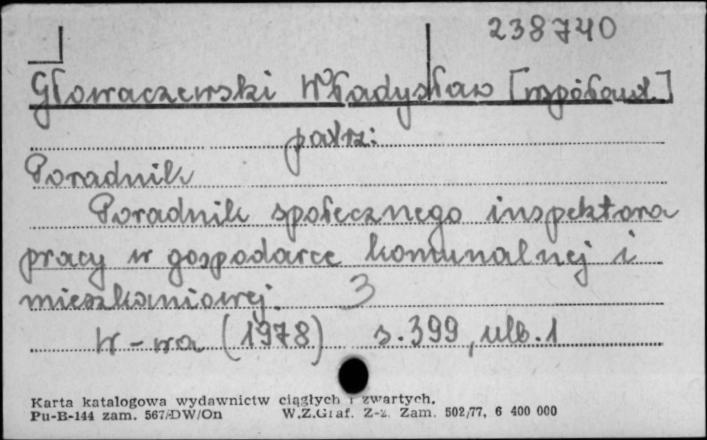 238740
Głowaczewski Władysław [współaut.]
patrz:
Poradnik
Poradnik społecznego inspektora
pracy w gospodarce komunalnej i
mieszkaniowej. 3
W-wa (1978) s. 399, ulb. 1
Karta katalogowa wydawnictw ciągłych i zwartych.
Pu-B-144 zam. 567/DW/On W.Z.Graf. Z-z. Zam. 502/77, 6 400 000